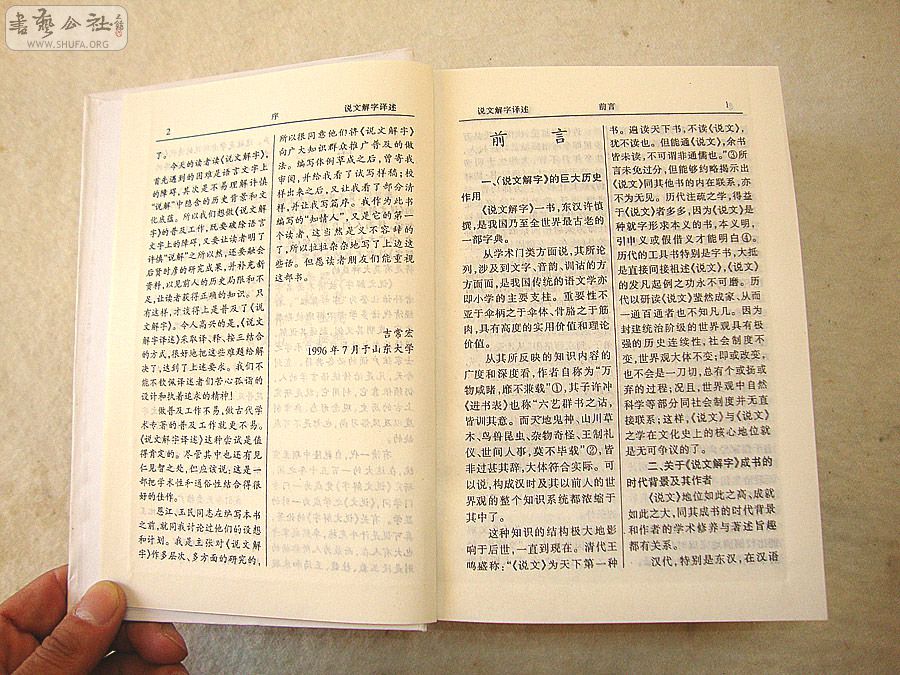 書藝公社
WWW.SHUFA.ORG
2
序
说文解字译述
了。
今天的读者读《说文解字》，
首先遇到的困难是语言文字上
的障碍，其次是不易理解许慎
“说解”中隐含的历史背景和文
化底蕴。所以我们想做《说文解
字》的普及工作，既要破除语言
文字上的障碍，又要让读者明了
许慎“说解”之所以然，还要融会
后贤时彦的研究成果，并补充新
资料，以见前人的历史局限和不
足，让读者获得正确的知识。只
有这样，才谈得上是普及了《说
文解字》。令人高兴的是，《说文
解字译述》采取译、释、按三结合
的方式，很好地把这些难题给解
决了，达到了上述要求。我们不
能不钦佩译述者们苦心孤诣的
设计和执着追求的精神！
做普及工作不易，做古代学
术专著的普及工作就更不易。
《说文解字译述》这种尝试是值
得肯定的。尽管其中也还有见
仁见智之处，但应该说；这是一
部把学术性和通俗性结合得很
好的佳作。
恩江、玉民同志在编写本书
之前，就同我讨论过他们的设想
和计划。我是主张对《说文解
字》作多层次、多方面的研究的，
所以很同意他们将《说文解字》
向广大知识群众推广普及的做
法。编写体例草成之后，曾寄我
审阅，并给我看了试写样稿；校
样出来之后，又让我看了部分清
样，并让我写篇序。我作为此书
编写的“知情人”，又是它的第一
个读者，这当然是义不容辞的
了，所以拉拉杂杂地写了上边这
些话。但愿读者朋友们能重视
这部书。
吉常宏
1996年7月于山东大学
说文解字译述
前言
1
前言
一、《说文解字》的巨大历史
作用
《说文解字》一书，东汉许慎
撰，是我国乃至全世界最古老的
一部字典。
从学术门类方面说，其所论
列，涉及到文字、音韵、训诂的方
方面面，是我国传统的语文学亦
即小学的主要支柱。重要性不
亚于伞柄之于伞体、骨骼之于筋
肉，具有高度的实用价值和理论
价值。
从其所反映的知识内容的
广度和深度看，作者自称为“万
物咸睹，靡不兼载”①，其子许冲
《进书表》也称“六艺群书之诂，
皆训其意。而天地鬼神、山川草
木、鸟兽昆虫、杂物奇怪、王制礼
仪、世间人事，莫不毕载”②，皆
非过甚其辞，大体符合实际。可
以说，构成汉时及其以前人的世
界观的整个知识系统都浓缩于
其中了。
这种知识的结构极大地影
响于后世，一直到现在。清代王
鸣盛称：“《说文》为天下第一种
书。遍读天下书，不读《说文》，
犹不读也。但能通《说文》，余书
皆未读，不可谓非通儒也。”③所
言未免过分，但能够约略揭示出
《说文》同其他书的内在联系，亦
不为无见。历代注疏之学，得益
于《说文》者多多，因为《说文》是
种就字形求本义的书，本义明，
引申义或假借义才能明白④。
历代的工具书特别是字书，大抵
是直接间接祖述《说文》，《说文》
的发凡起例之功永不可磨。历
代以研读《说文》蜚然成家、从而
一通百通者也不知凡几。因为
封建统治阶级的世界观具有极
强的历史连续性，社会制度不
变，世界观大体不变；即或改变，
也不会是一刀切，总有个或扬或
弃的过程；况且，世界观中自然
科学等部分同社会制度并无直
接联系；这样，《说文》与《说文》
之学在文化史上的核心地位就
是无可争议的了。
二、关于《说文解字》成书的
时代背景及其作者
《说文》地位如此之高、成就
如此之大，同其成书的时代背景
和作者的学术修养与著述旨趣
都有关系。
汉代，特别是东汉，在汉语